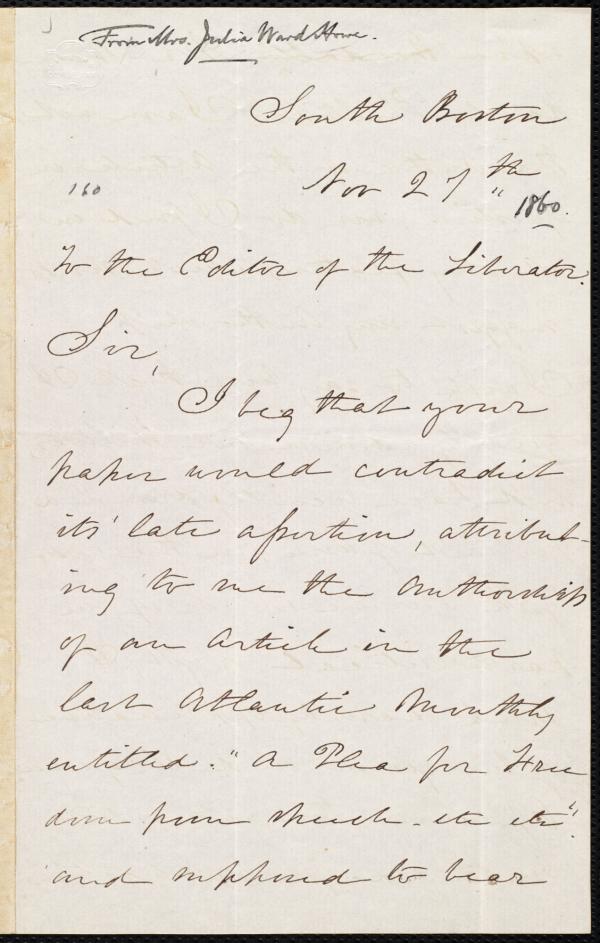 From Mrs. Julia Ward Howe.
South Boston
Nov 27th
160
1860.
To the Editor of the Liberator.
Sir,
I beg that your
paper would contradict
its' late assertion, attribut-
ing to me the authorship
of an article in the
last Atlantic Monthly
entitled. "A Plea for Free
dom from speech - etc etc".
and supposed to bear